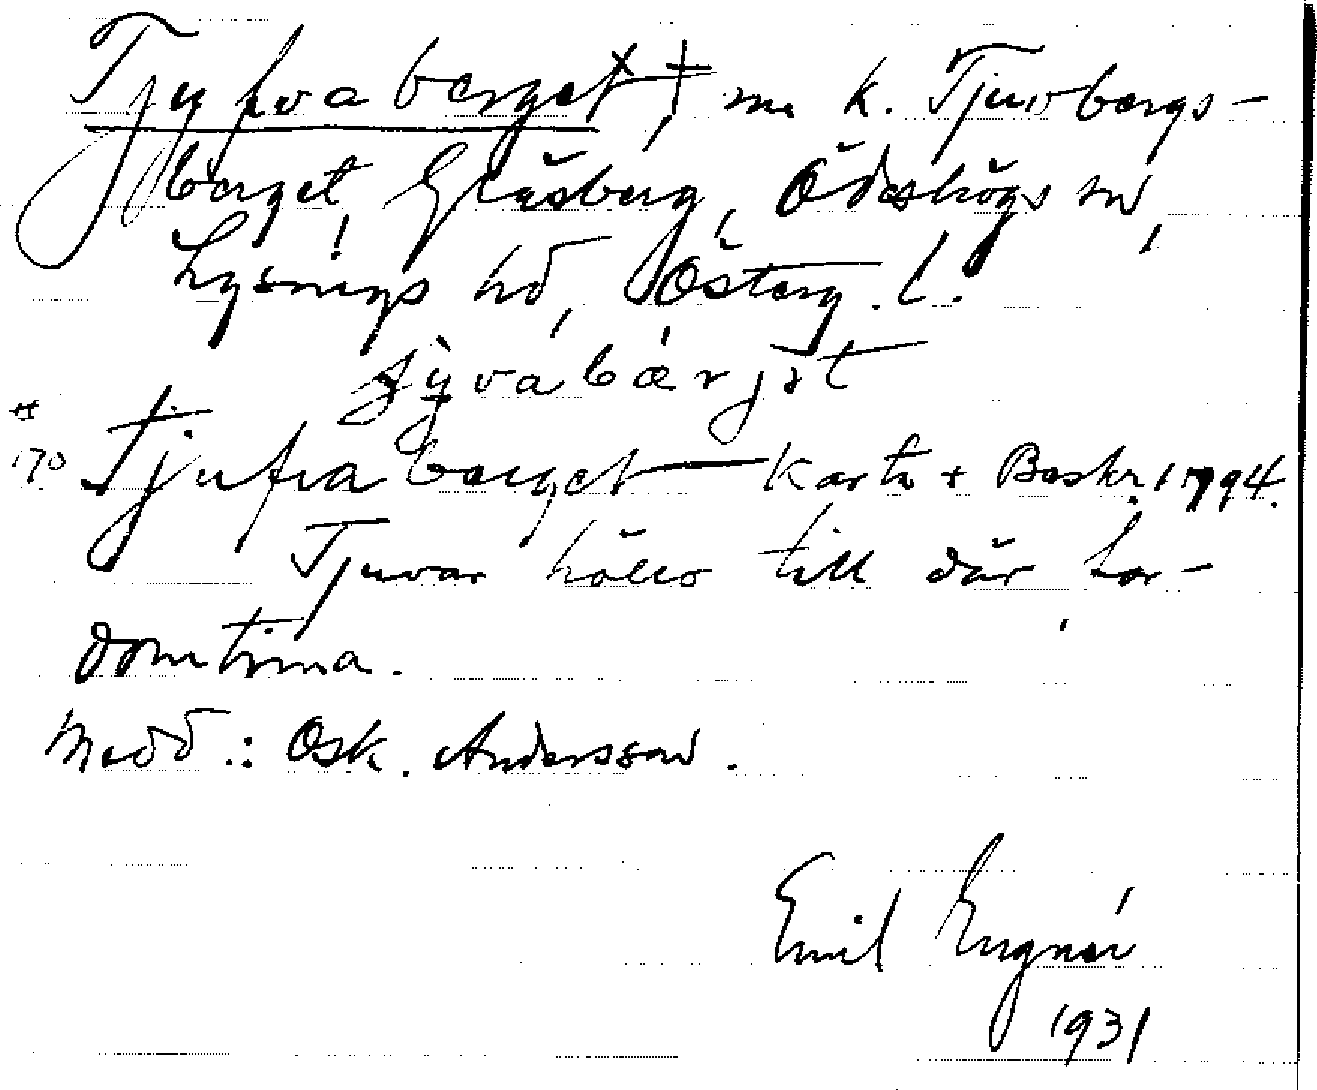 Tjufvaberget x †, nu k. Tjuvbergs-
berget, Gråsberg, Ödeshögs sn,
Lysings hd, Österg. l.
jỳvabàrjət
# Tjufvaberget — Karta + Beskr. 1794.
170
Tjuvar höllo till där for-
domtima.
Medd.: Osk. Andersson.
Emil Engnér
1931